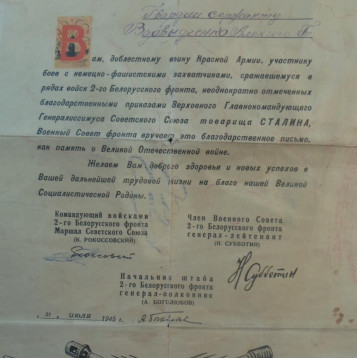 Гвардии сержанту
Вам, доблестному воину Красной Армии, участнику
боев с немецко-фашистскими захватчинами, сражавшемуся в
рядах войск 2-го Белорусского фронта, неоднократно отмеченных
благодарственными приказами Верховного Главнокомандующего
Генералиссимуса Советского Союза товарища СТАЛИНА,
Военный Совет фронта вручает это благодарственное письмо,
как память о Великой Отечественной войне.
Желаем Вам доброго здоровья и новых успехов в
Вашей дальнейшей трудовой жизни на благо нашей Великой
Социалистической Родины.
Командующий войсками
2-го Белорусского фронта
Маршал Советского Союза
(К. РОКОССОВСКИЙ)
Член Военного Совета
2-го Белорусского фронта
генерал-лейтенант
(Н. СУББОТИН)
Н Субботин
Начальник штаба
2-го Белорусского фронта
генерал-полковник
(А. БОГОЛЮБОВ)
июля 1945 г.